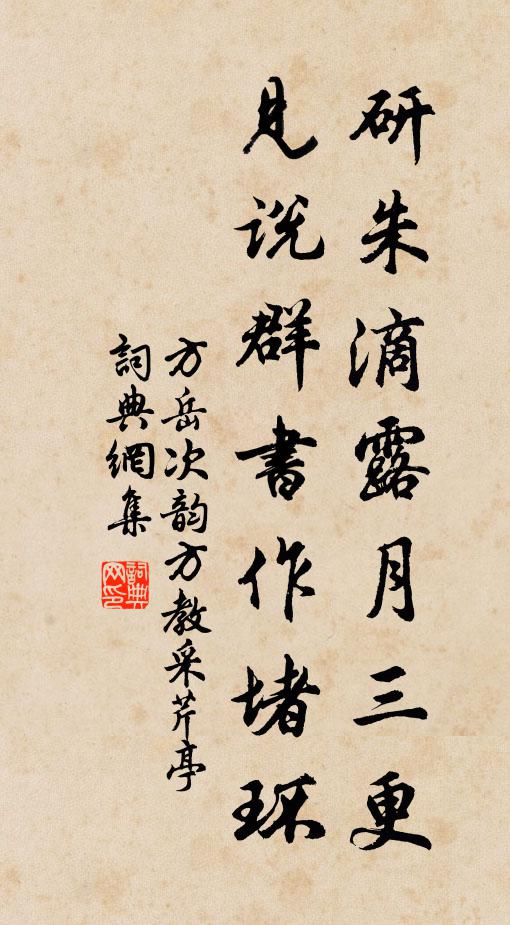 研朱滴露月三更
見說群書作堵環
方岳次韵方教采芹亭
詞典網集
詞典
网印